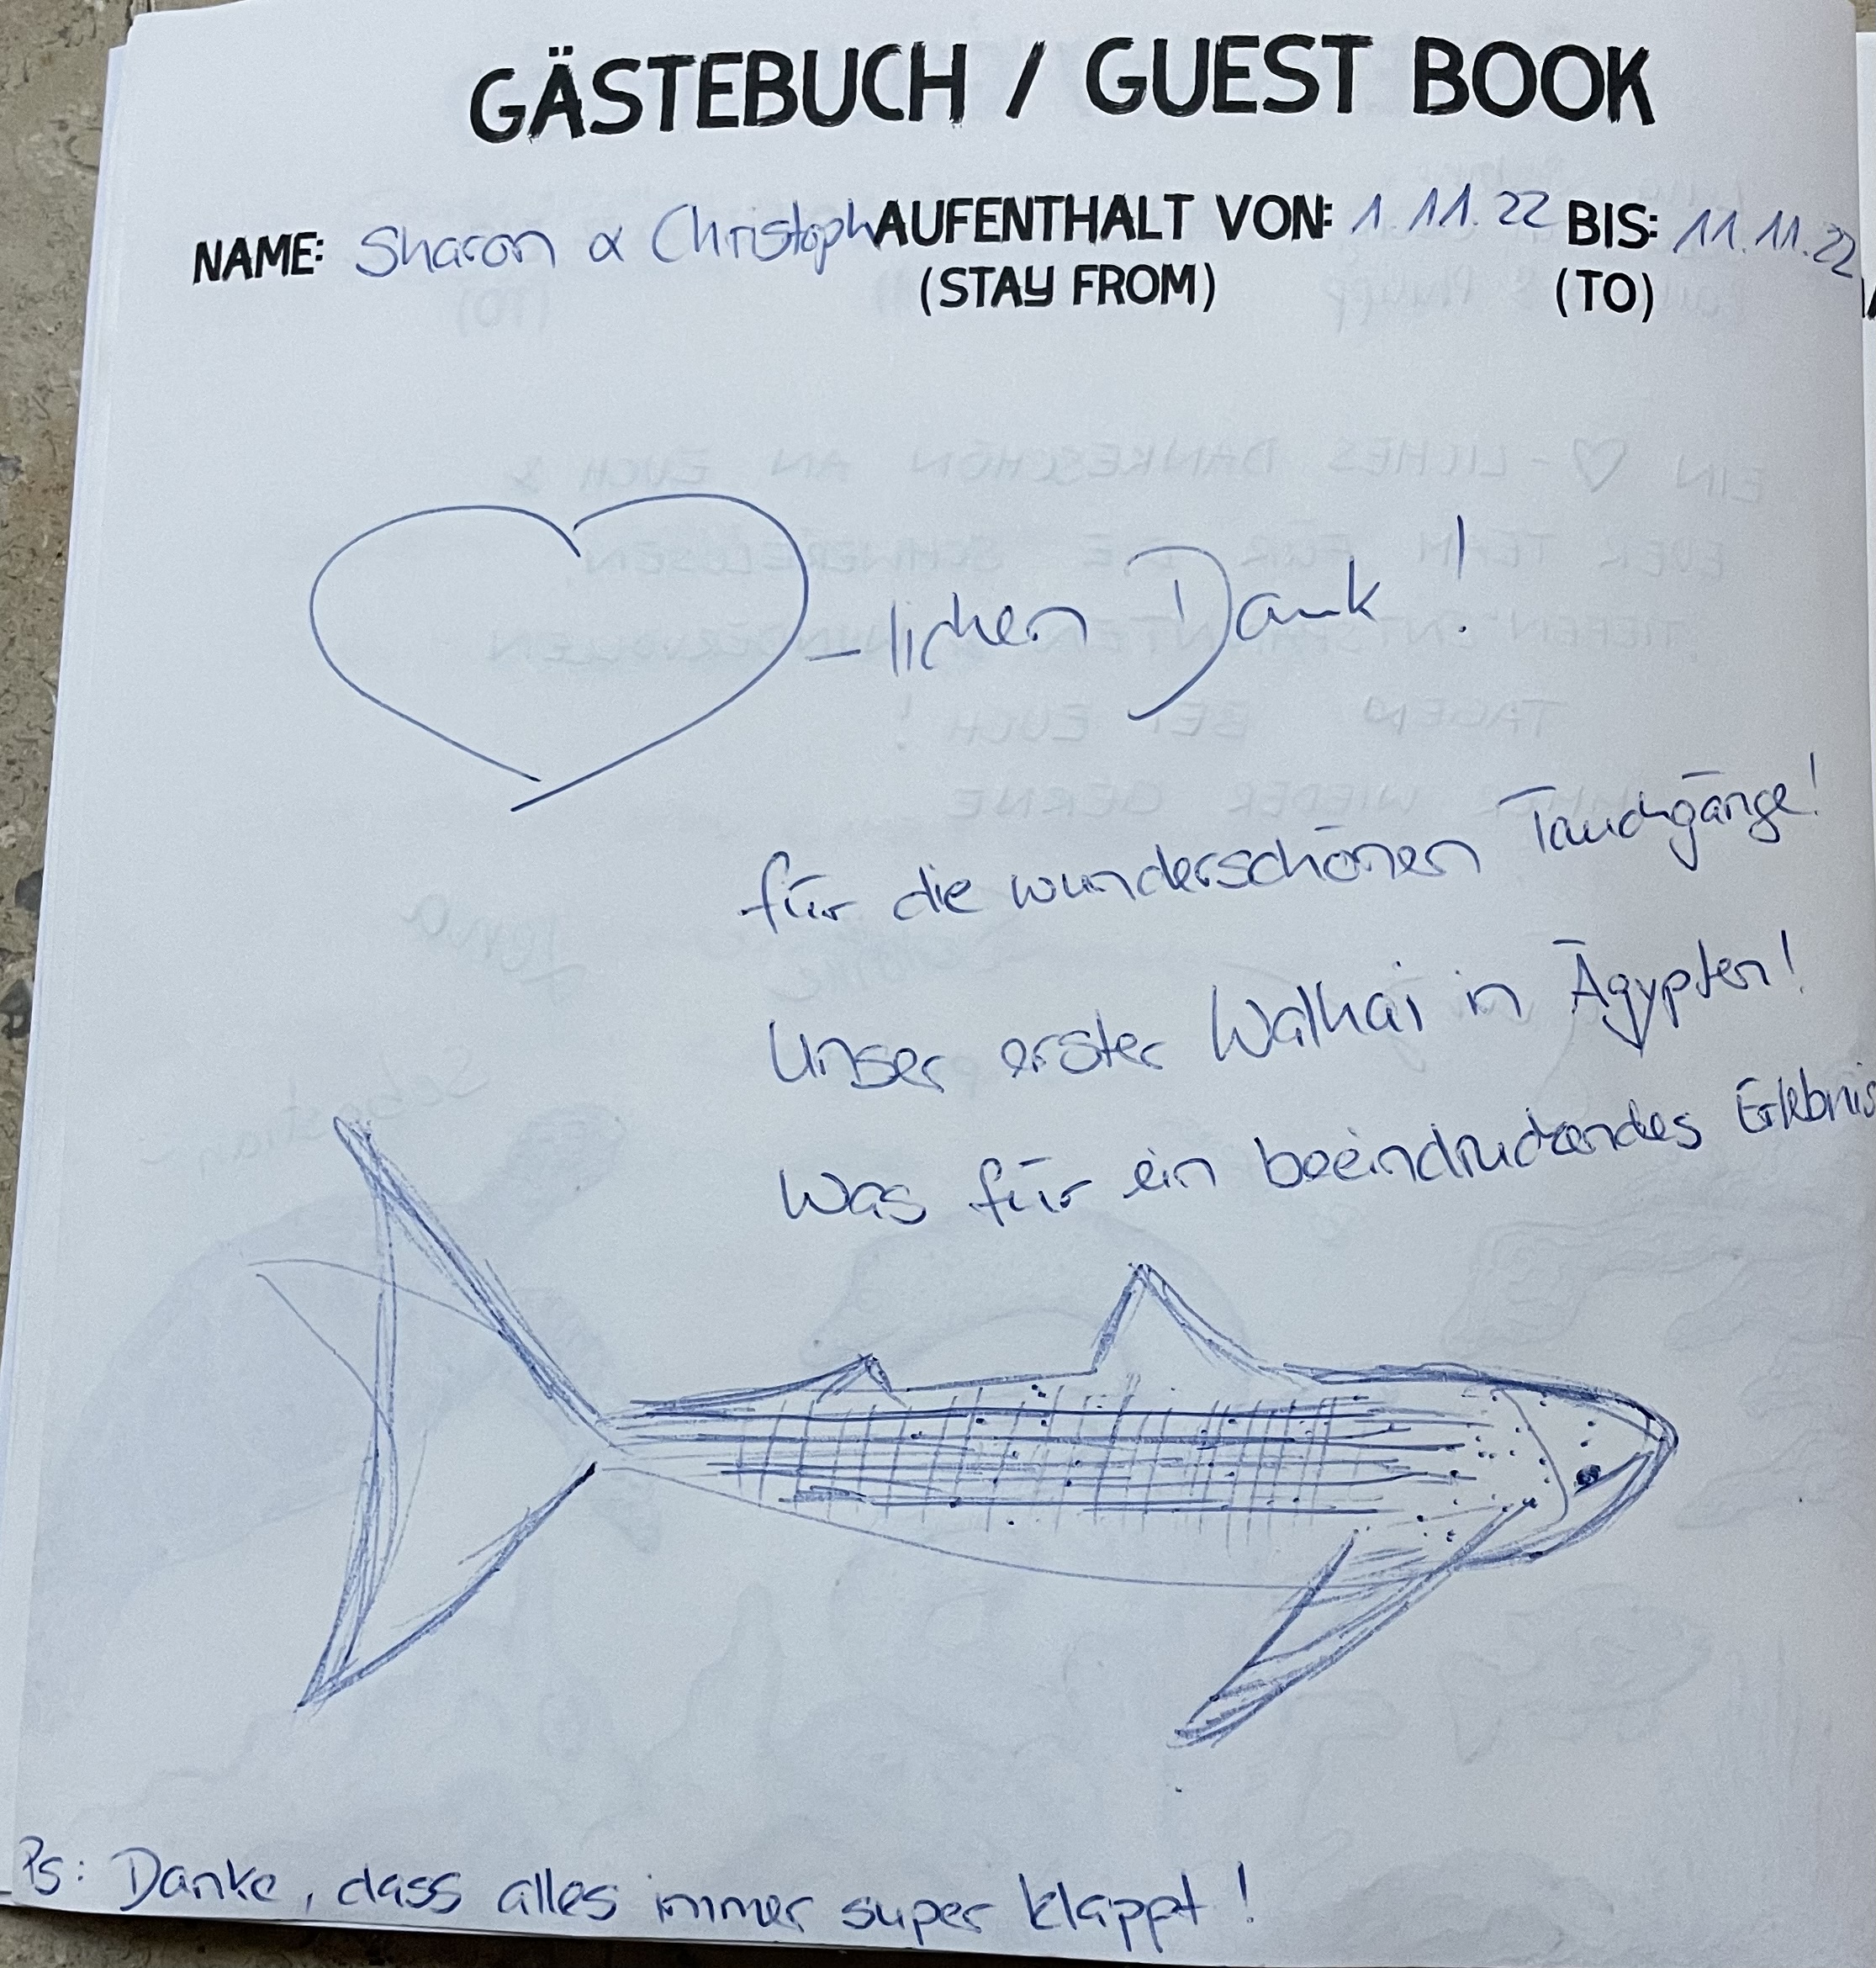 GÄSTEBUCH / GUEST BOOK
NAME: Sharon & Christoph AUFENTHALT VON: 1.11.22 BIS: 11.11.22
(STAY FROM) (TO)
-lichen Dank!
für die wunderschönen Tauchgänge!
Unser erster Walhai in Ägypten!
Was für ein beeindruckendes Erlebnis
Ps: Danke, dass alles immer super klappt!